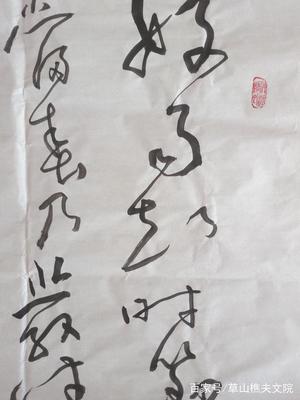 好雨知时節
當春乃發生
百家号/草山樵夫文院